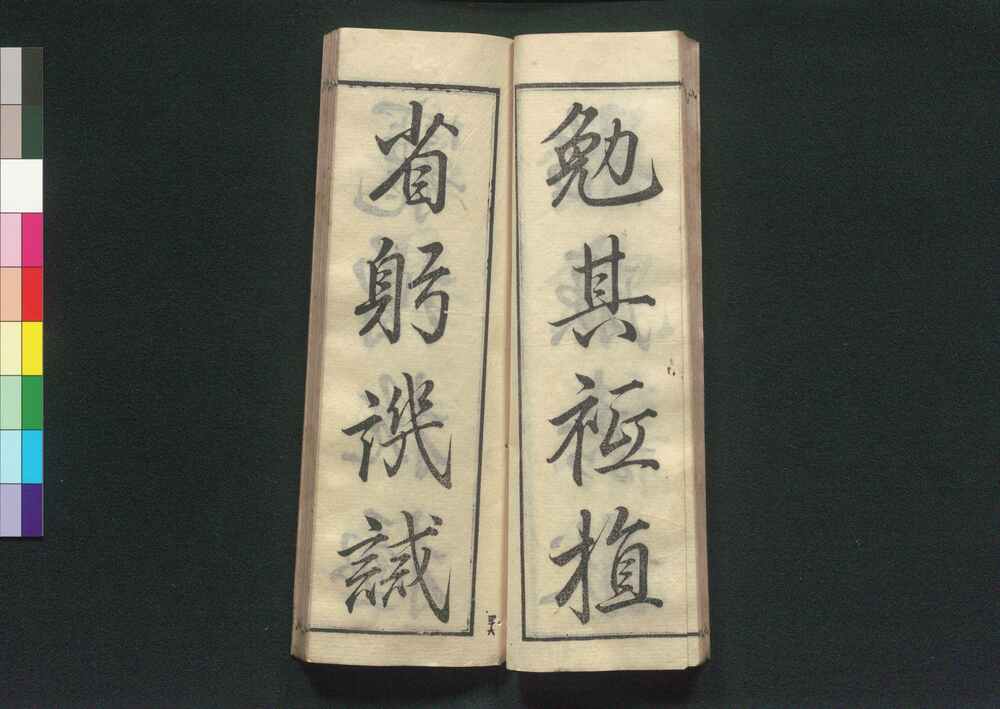 勉其祗植
省躬譏誡